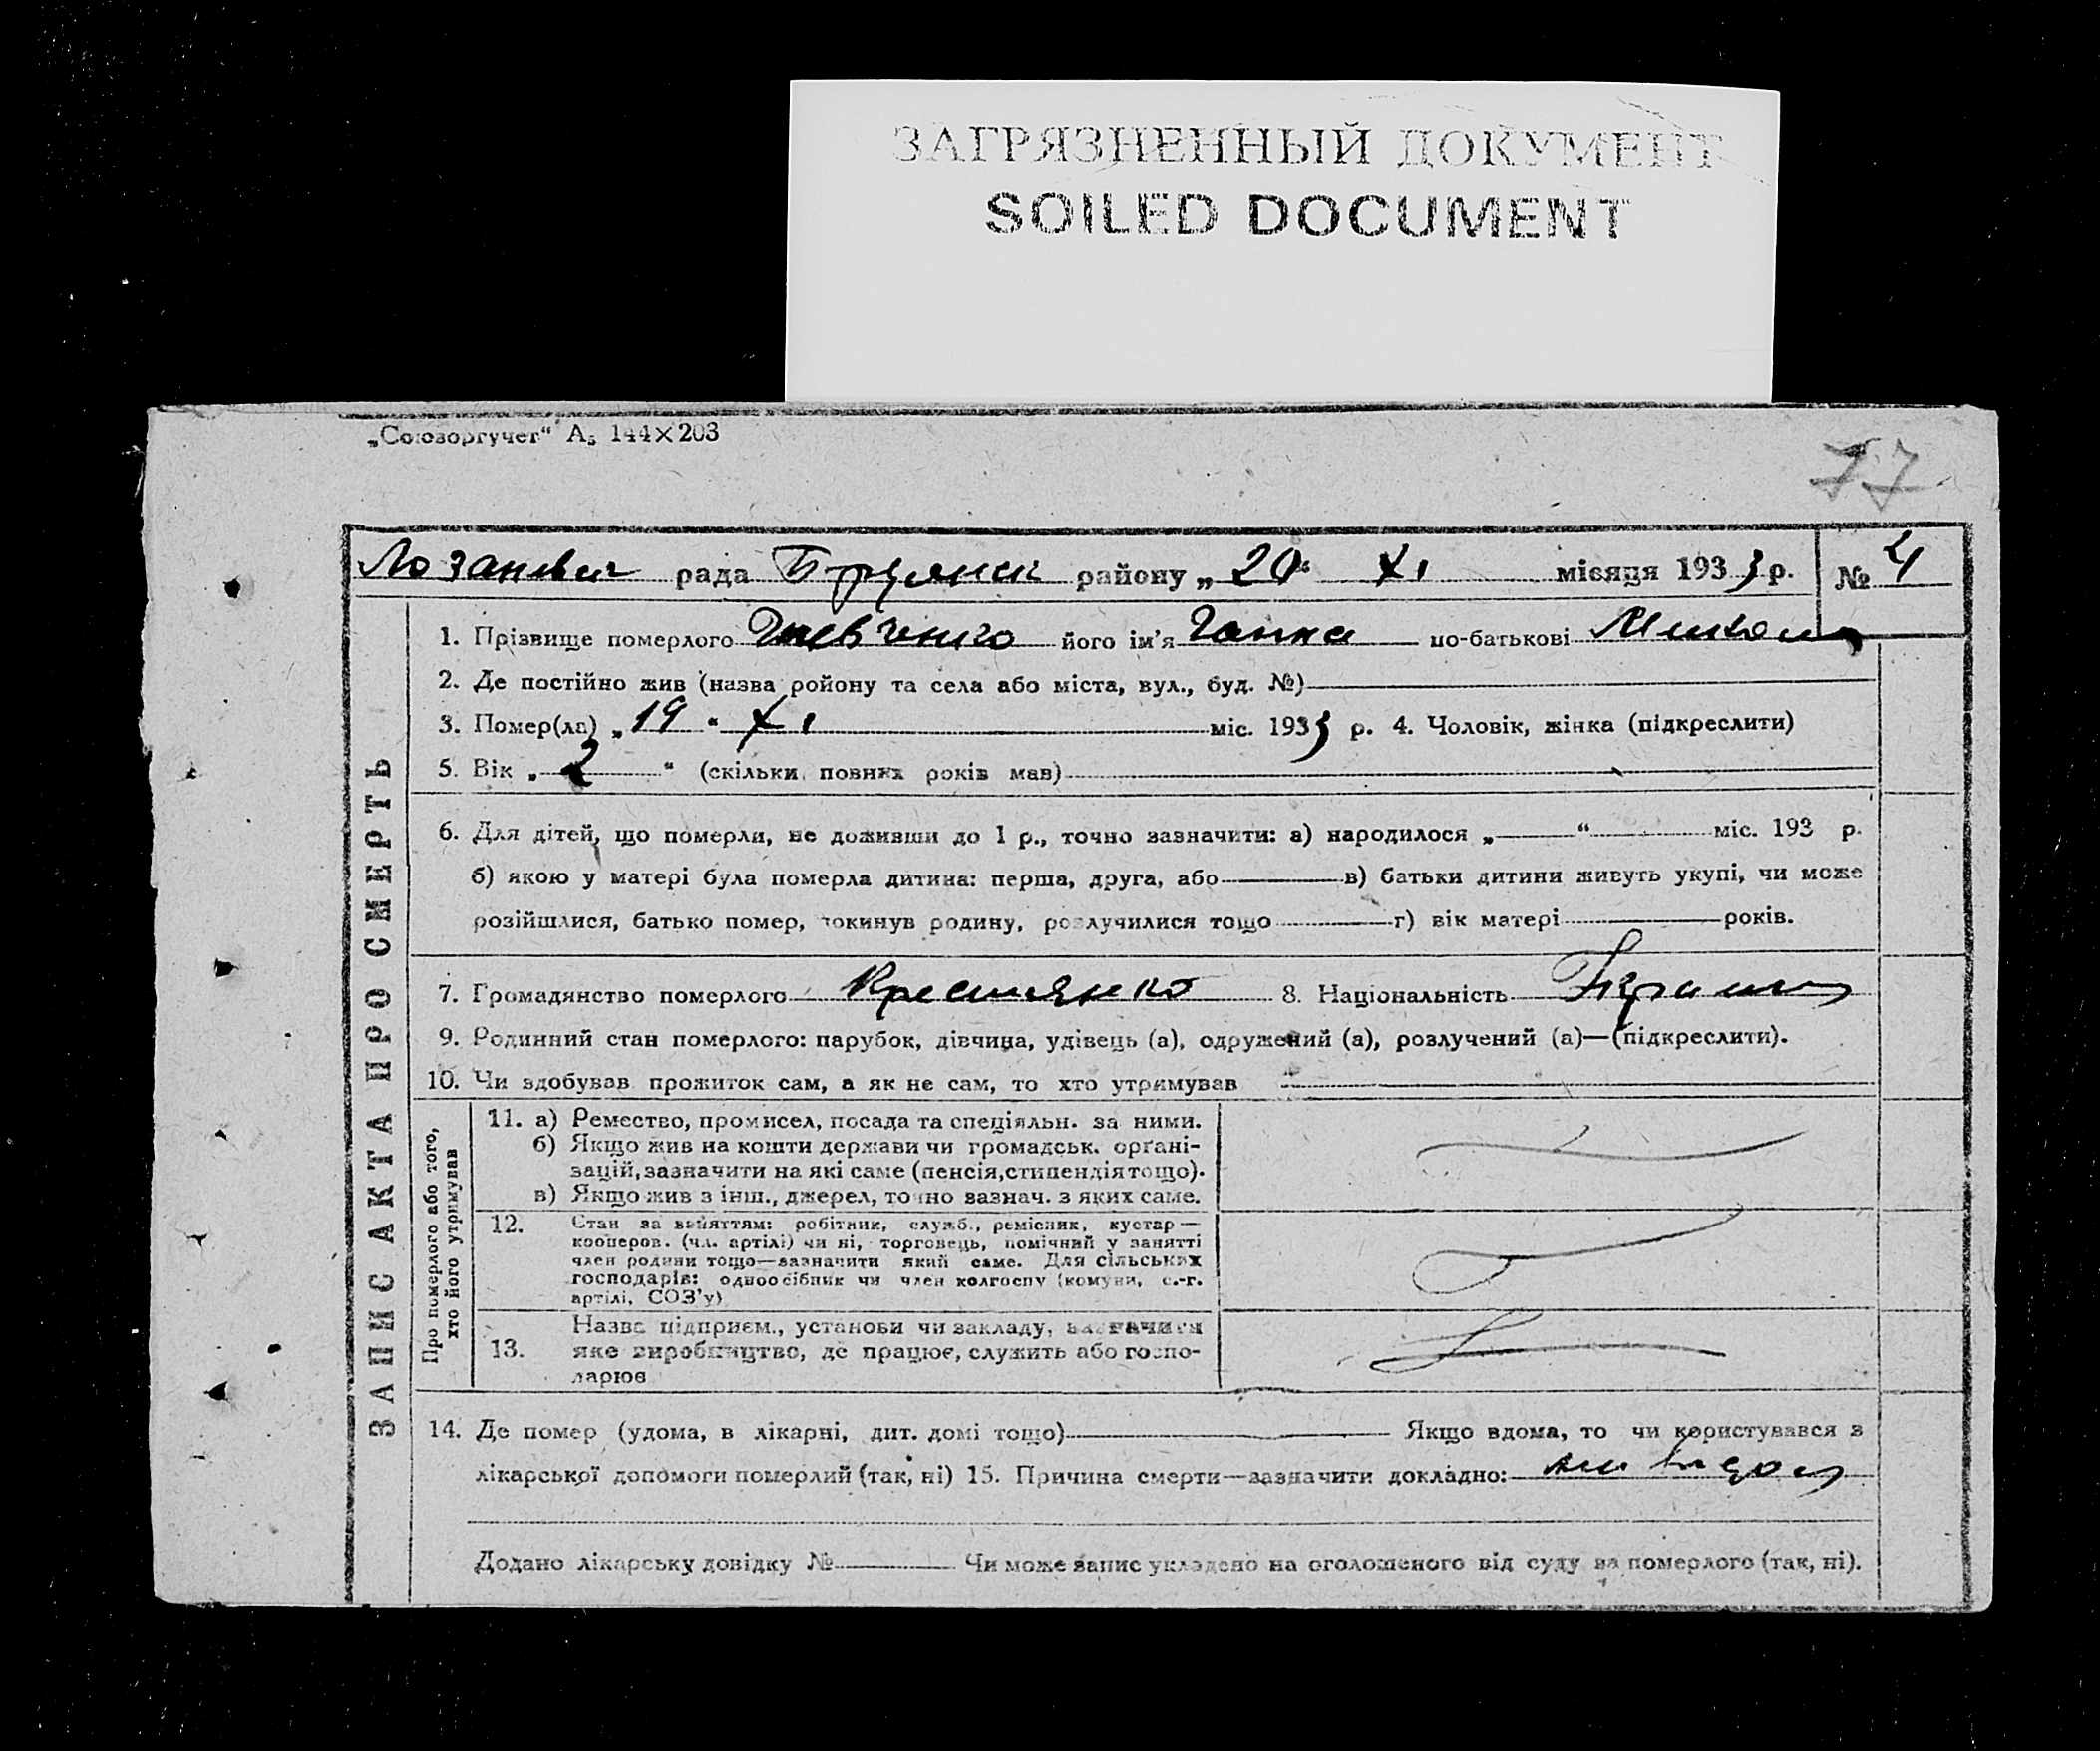 ЗАГРЯЗНЕННЫЙ ДОКУМЕНТ
SOILED DOCUMENT
„Союзоргучет“ А₅ 144×203
77
рада району „20“ XI місяця 1933 р. № 4
ЗАПИС АКТА ПРО СМЕРТЬ
1. Прізвище померлого Шевченко його ім'я Ганна по-батькові
2. Де постійно жив (назва ройону та села або міста, вул., буд. №)
3. Помер(ла) „19“ XI міс. 1933 р. 4. Чоловік, жінка (підкреслити)
5. Вік „2“ (скільки повних років мав)
6. Для дітей, що померли, не доживши до 1 р., точно зазначити: а) народилося „ “ міс. 193 р.
б) якою у матері була померла дитина: перша, друга, або в) батьки дитини живуть укупі, чи може
розійшлися, батько помер, покинув родину, розлучилися тощо г) вік матері років.
7. Громадянство померлого 8. Національність
9. Родинний стан померлого: парубок, дівчина, удівець (а), одружений (а), розлучений (а)—(підкреслити).
10. Чи здобував прожиток сам, а як не сам, то хто утримував
Про померлого або того,
хто його утримував
11. а) Ремество, промисел, посада та спеціяльн. за ними.
б) Якщо жив на кошти держави чи громадськ. орґані-
зацій, зазначити на які саме (пенсія, стипендія тощо).
в) Якщо жив з інш., джерел, точно зазнач. з яких саме.
12. Стан за заняттям: робітник, служб., ремісник, кустар —
кооперов. (чл. артілі) чи ні, торговець, помічний у занятті
член родини тощо—зазначити який саме. Для сільських
господарів: одноосібник чи член колгоспу (комуни, с.-г.
артілі, СОЗ'у)
13. Назва підприєм., установи чи закладу, зазначити
яке виробництво, де працює, служить або госпо-
дарює
14. Де помер (удома, в лікарні, дит. домі тощо) Якщо вдома, то чи користувався з
лікарської допомоги померлий (так, ні) 15. Причина смерти—зазначити докладно:
Додано лікарську довідку № Чи може запис укладено на оголошеного від суду за померлого (так, ні).